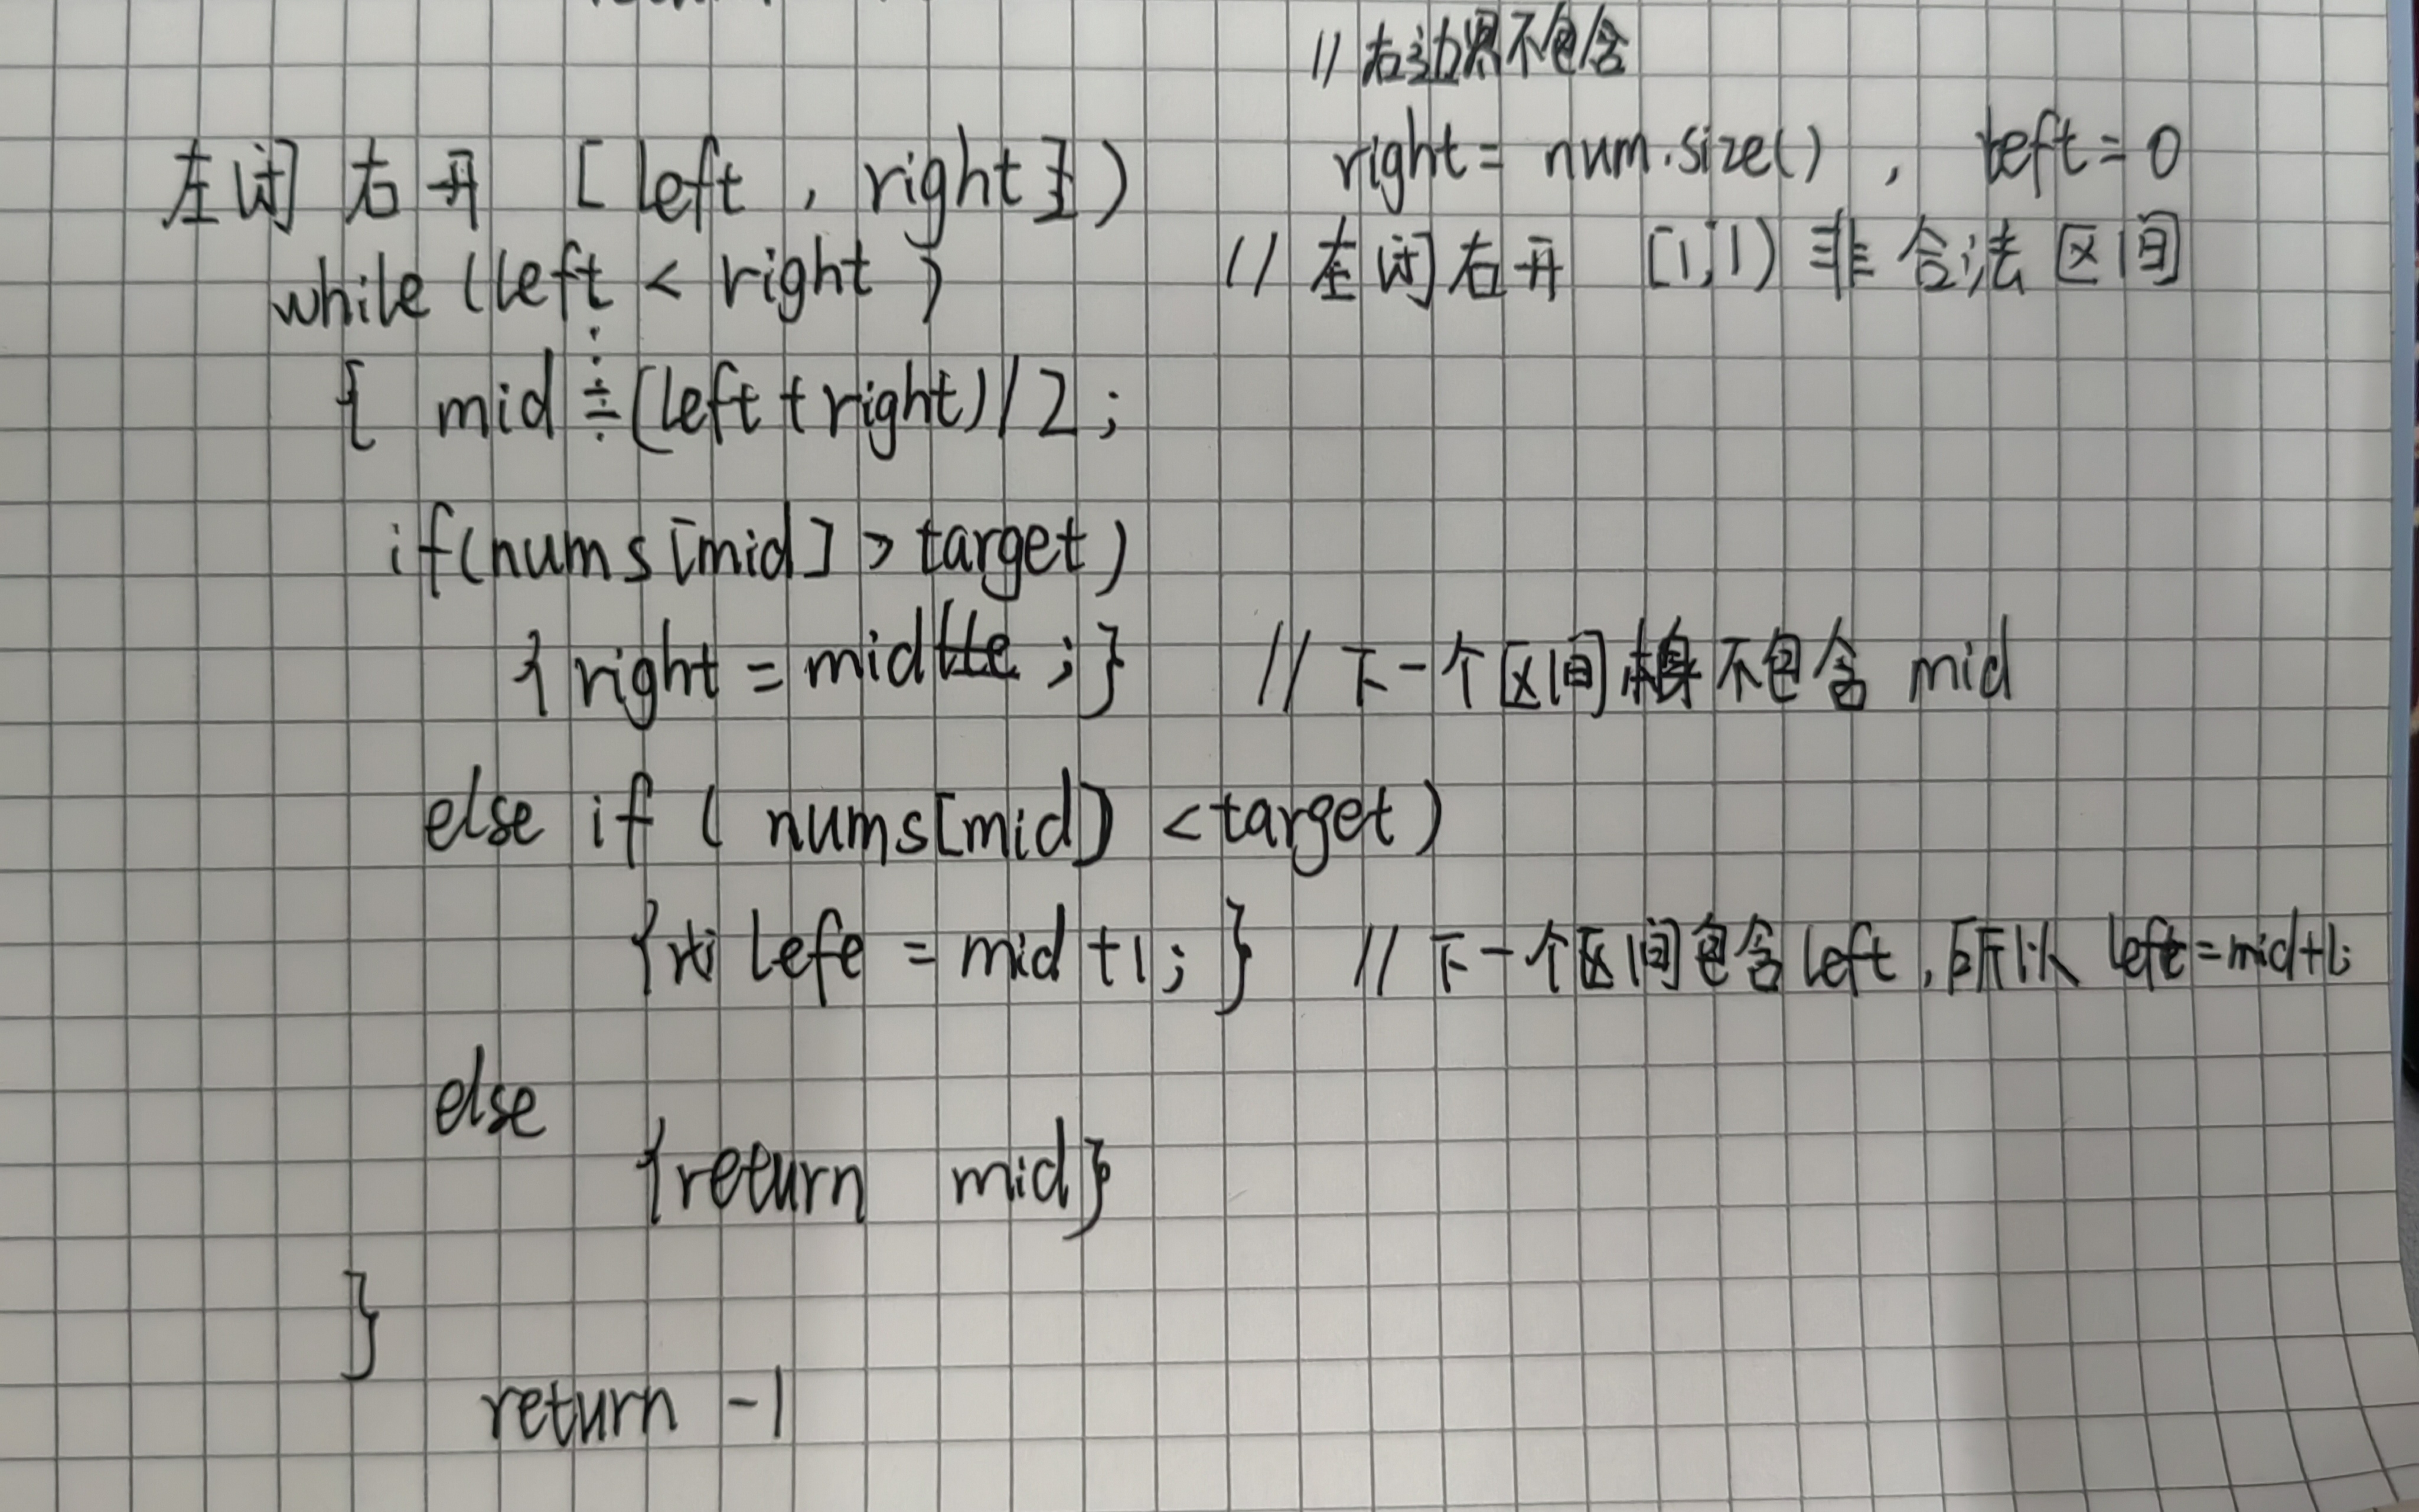 // 右边界不包含
左闭右开 [left , right) right = num.size() , left = 0
while (left < right) // 左闭右开 [1,1) 非合法区间
{ mid = (left + right)/2;
if(nums[mid] > target)
{ right = mid ; } // 下一个区间本身不包含 mid
else if ( nums[mid] < target )
{ lefe = mid +1; } // 下一个区间包含 left , 所以 left = mid+1;
else
{return mid}
}
return -1